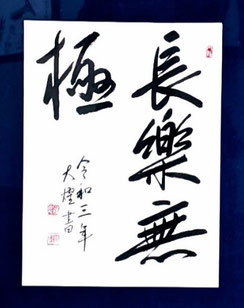 長樂無
極
令和三年
大煌書